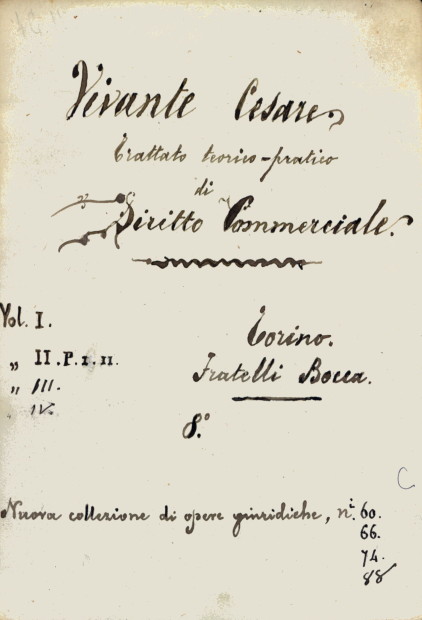 Vivante Cesare
Trattato teorico-pratico
di
Diritto Commerciale.
Vol. I.
„ II. P. I. II.
„ III.
IV.
Torino.
Fratelli Bocca.
8.°
Nuova collezione di opere giuridiche, n.i 60.
66.
74.
88